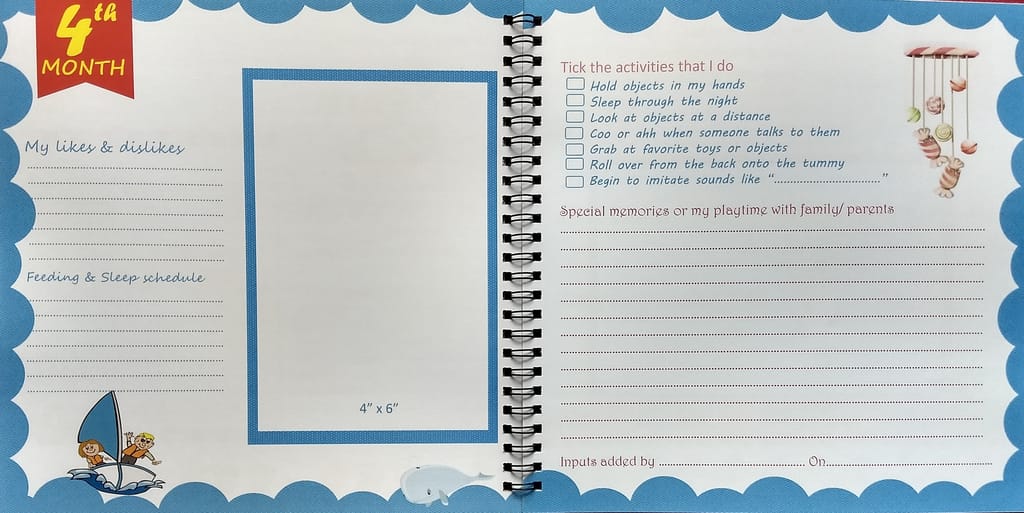 4th
MONTH
My likes & dislikes
Feeding & Sleep schedule
4” x 6”
Tick the activities that I do
Hold objects in my hands
Sleep through the night
Look at objects at a distance
Coo or ahh when someone talks to them
Grab at favorite toys or objects
Roll over from the back onto the tummy
Begin to imitate sounds like “..................................”
Special memories or my playtime with family/ parents
Inputs added by ................................................ On................................................